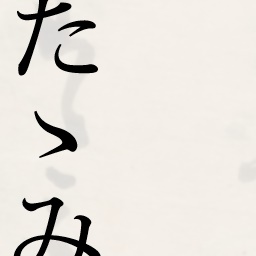 たゝみ